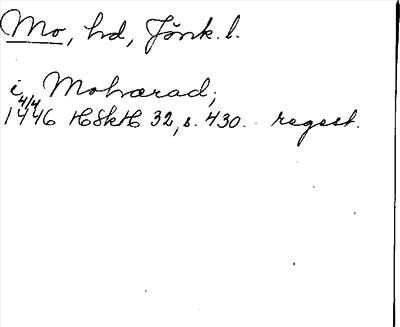 Mo, hd, Jönk. l.
i Mohærad;
1446 4/4 HSkH 32, s. 430. regest.